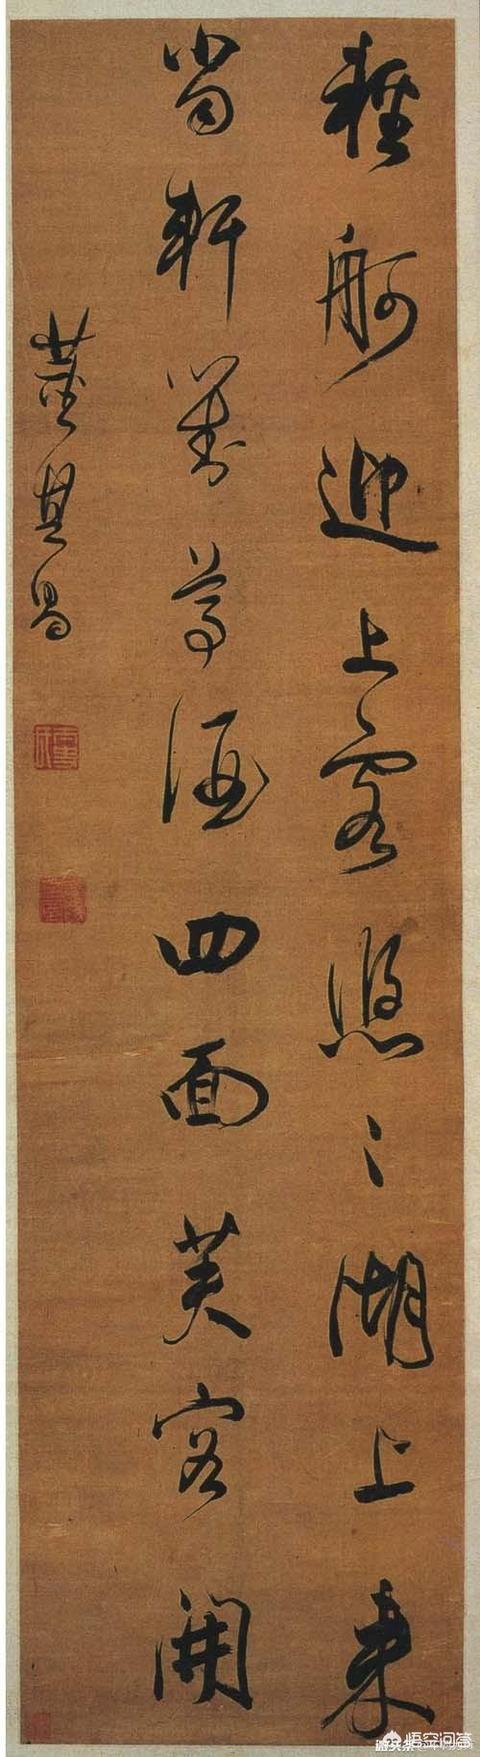 輕舸迎上客悠〻湖上來
當軒對尊酒四面芙容開
董其昌
悟空问答